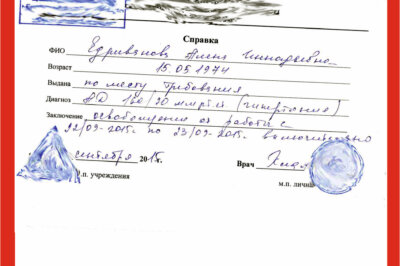 Справка
ФИО Едриванова Алена Геннадьевна
Возраст 15.05 1974
Выдана по месту требования
Диагноз АД 160/90 мм рт.ст (гипертония)
Заключение освобождение от работы с
22/09-2015г. по 23/09-2015г. включительно
сентября 2015г. Врач
п. учреждения м.п. личн